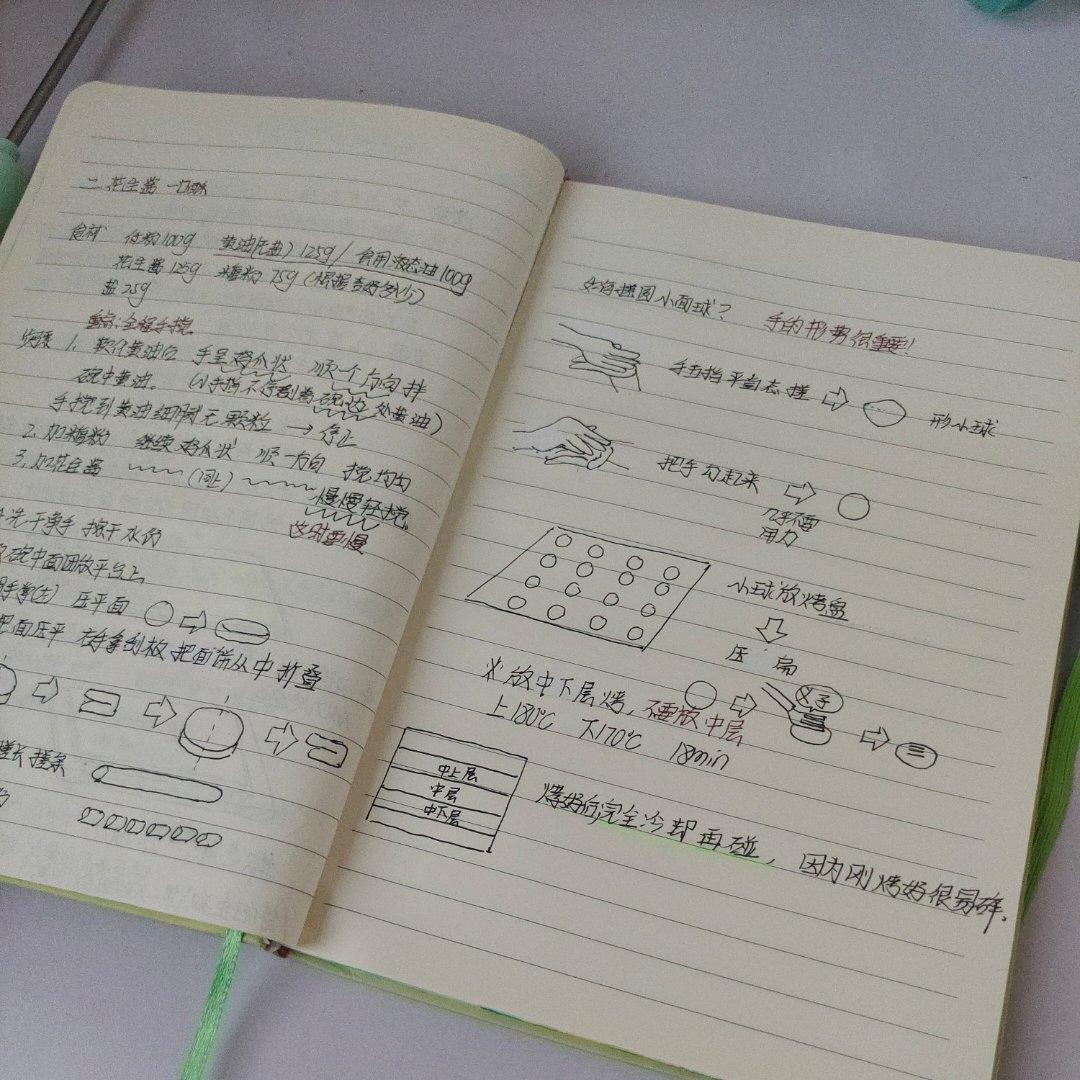 二 花生酱一口酥
食材 低粉100g 黄油(无盐)125g/食用液态油100g
花生酱125g 糖粉75g(根据喜好多少)
盐25g
重点:全程手搅.
步骤 1. 软化黄油后 手呈鸡爪状 顺一个方向拌
碗中黄油. (手指不停刮着碗边处黄油)
手搅到黄油细腻无颗粒 → 停止
2. 加糖粉 继续鸡爪状 顺一方向 搅均匀
3. 加花生酱 (同上) 慢慢轻搅.
这时要慢
洗干净手 擦干水份
碗中面团放平台上
手掌(左) 压平面
把面压平 右手拿刮板 把面饼从中折叠
搓长 搓条
如何搓圆小面球? 手的形势很重要!
手指平直态搓 形小球
把手勾起来
不要
用力
小球放烤盘
压扁
叉子
※放中下层烤,不要放中层
上180℃ 下170℃ 18min
中上层
中层
中下层
烤好后完全冷却再碰,因为刚烤好很易碎.